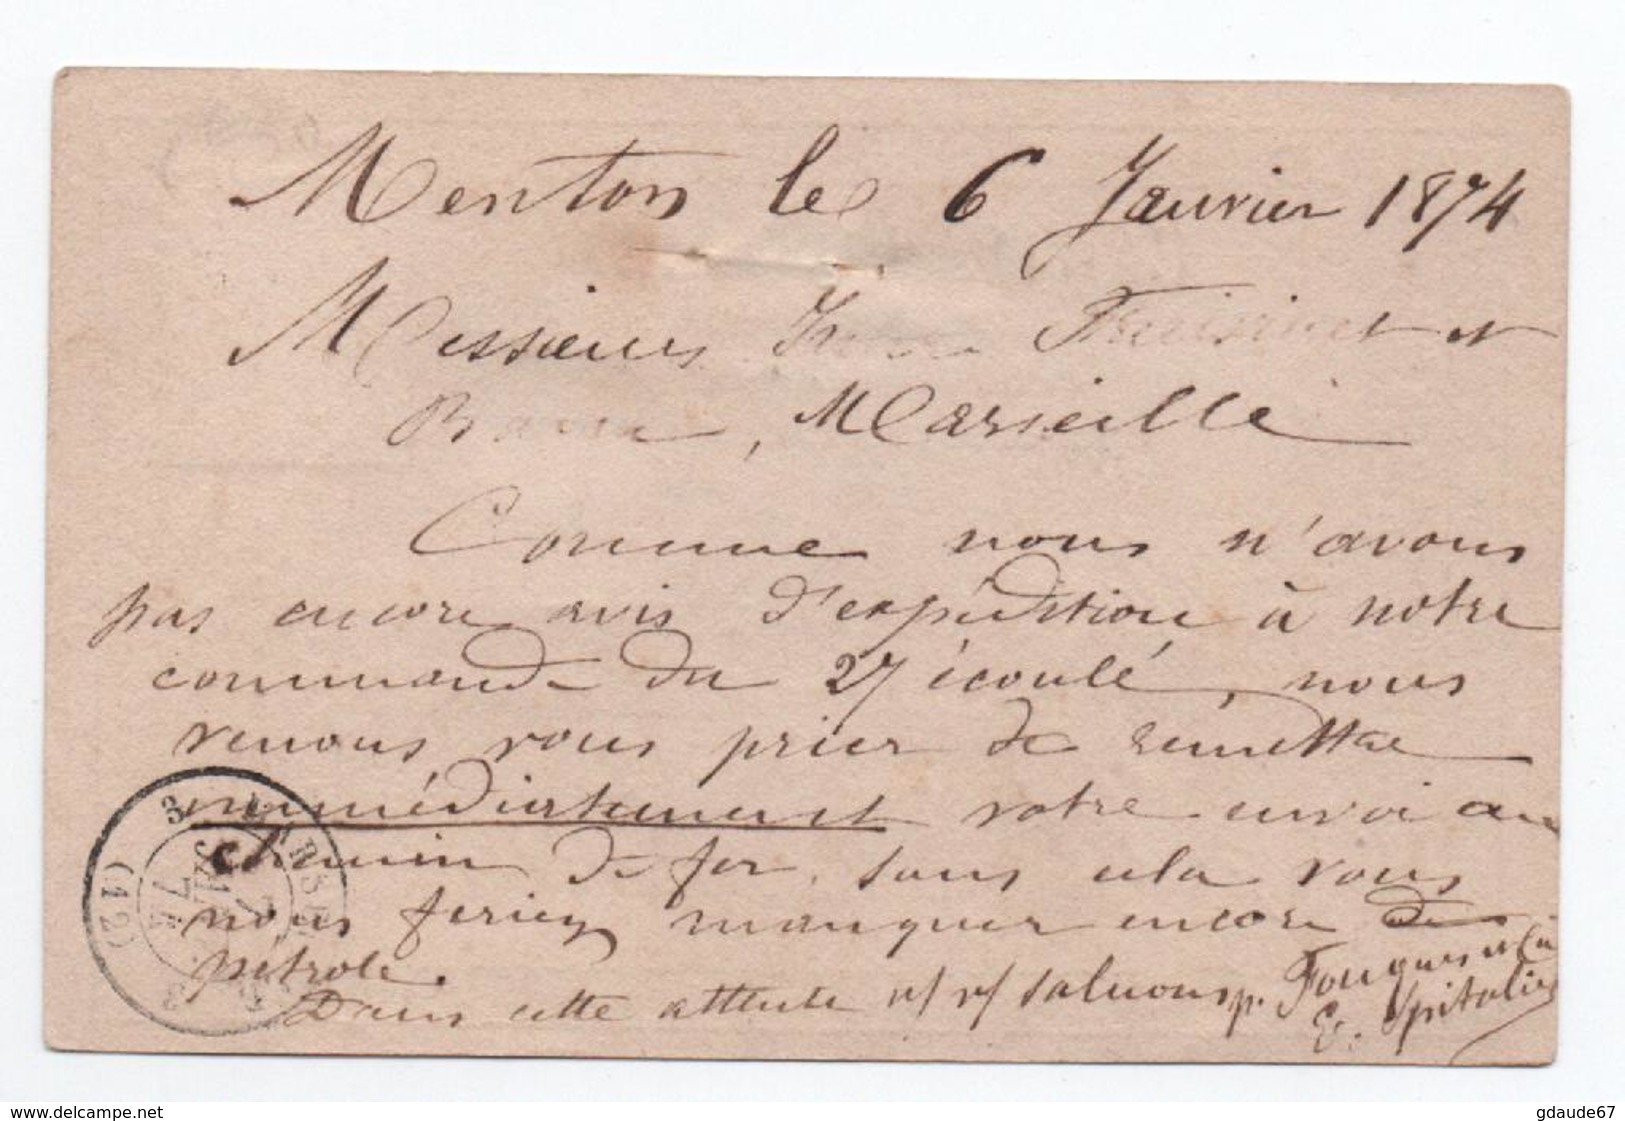 Menton le 6 Janvier 1874
Messieurs Fraissinet et
Marseille
Comme nous n'avons
pas encore avis d'expédition à notre
commande du 27 écoulé, nous
venons vous prier de remettre
immédiatement votre envoi au
chemin de fer, sans cela vous
nous feriez manquer encore de
pétrole.
Dans cette attente n/ v/ saluons p. Fouques et Cie
E. Spitalier
3
JANV.
74
(12)
www.delcampe.net
gdaude67